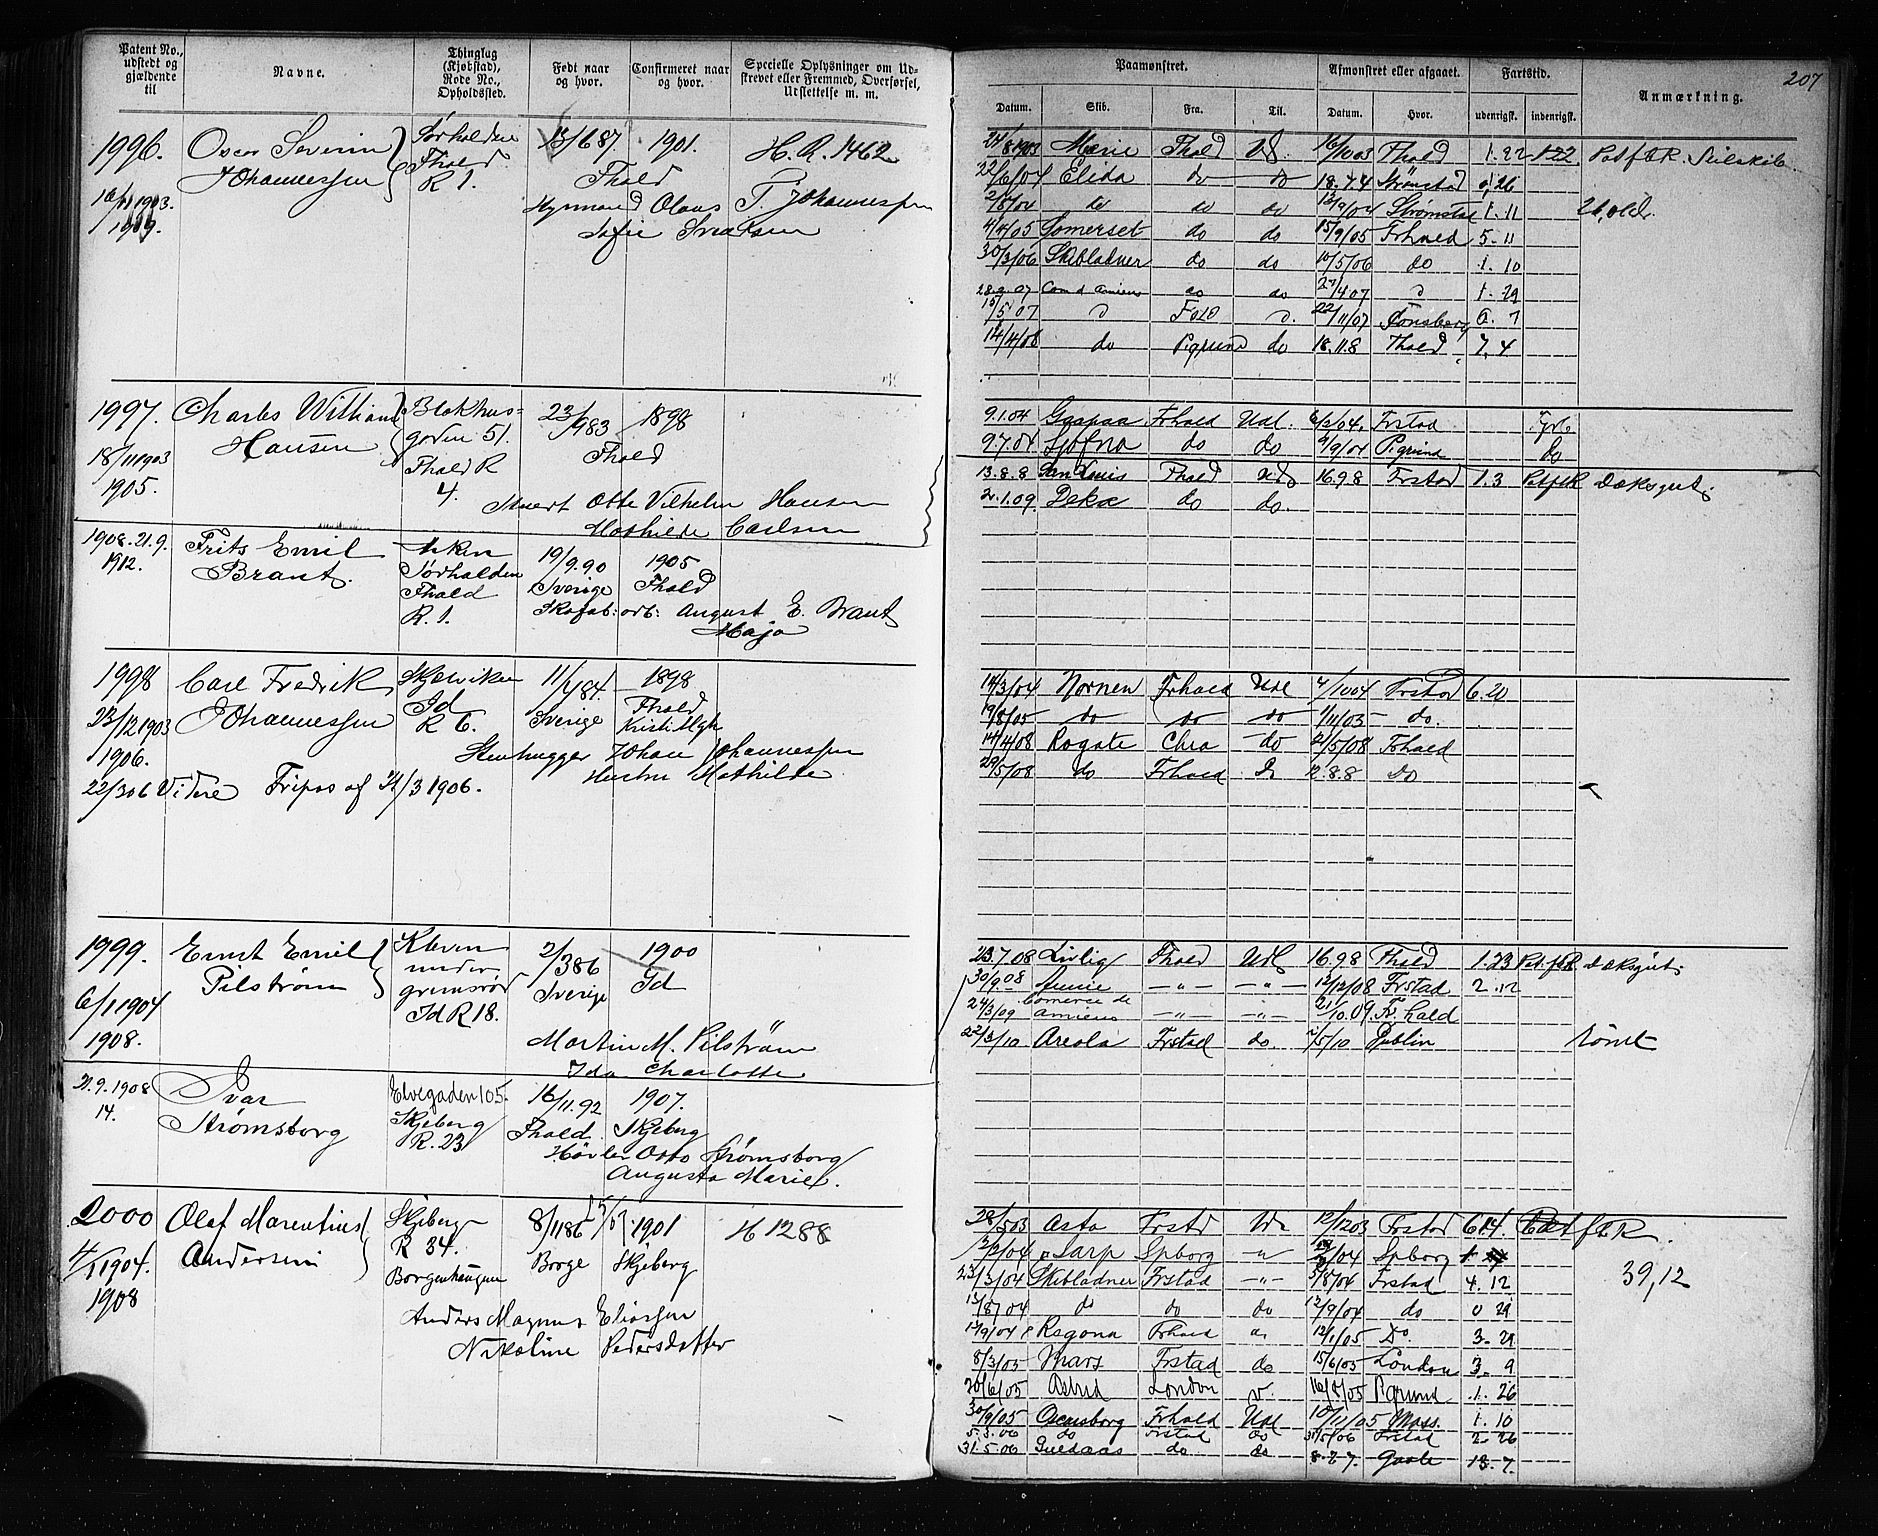 Patent No., udstedt og gjældende til | Navne. | Thinglag (Kjøbstad), Rode No., Opholdssted. | Født naar og hvor. | Confirmeret naar og hvor. | Specielle Oplysninger om Udskrevet eller Fremmed, Overførsel, Udslettelse m. m.
1996. Oscar Severin 13/6 87 1901. H. R. 1462
Johannessen Fhald R 1. Fhald
10/11 1903. Olaus T. Johannessen
1909.
1997. Charles William Blokhus- 23/ 1898
Hansen gaden 51. 983 Fhald
18/11 1903 Fhald R
1905. 4. Otto Vilhelm Hansen
Mathilde Carlsen
1908. 21.9. Frits Emil 19/9.90 1905
1912. Brant. Sørhalden Sverige Fhald
Fhald
R. 1. August E. Brant
Maja
1998 Carl Fredrik Skjelviken 11/ 84. 1898
Johannessen Id Sverige Fhald
23/12 1903 R 6.
1906. Stenhugger Johan Johannessen
Hustru Mathilde
22/3 06 Videre Fripas af 21/3 1906.
1999. Ernst Emil Kleven 2/386 1900
Pilstrøm under Sverige Id
6/1 1904 grimsrød
Id R 18.
1908. Martin M. Pilstrøm
Ida Charlotte
21.9.1908 Ivar Elvegaden 105. 16/11.92 1907.
14. Strømsborg Skjeberg Fhald. Skjeberg
R. 23 Otto Strømsborg
Augusta Marie
2000 Olaf Marentius Skjeberg 8/1186 1901 H 1288
Andersen R 34. Borge Skjeberg
4/1 1904. Borgenhaugen
1908 Anders Magnus Eliassen
Nikoline Pedersdatter
207
Paamønstret. | Afmønstret eller afgaaet. | Fartstid. | Anmærkning.
Datum. | Skib. | Fra. | Til. | Datum. | Hvor. | udenrigsk. | indenrigsk.
24/8 1903 Marie Fhald Ud. 16/10 03 Fhald 1. 22 Seilskib
22/6/04 Elida do do 18.7.4 Strømstad 0,26
2/8/04 do do do 12/9/04 Strømstad 1. 11
4/4/05 Somerset do do 15/9/05 Frhald 5. 11
30/3/06 Skibladner do do 10/5/06 do 1. 10
28.2.07 Com d Amiens do do 27/4 07 1. 29
15/5 07 22/11/07 Tønsberg 6. 7
14/4/08 do Pgrund do 18.11.8 Fhald 7. 4
9.1.04 Frhald Udl. 6/2/04. Frstad
9.7.04 Sjofna do do 4/9/04 Pgrund do
13.8.8 San Louis Fhald 16.9.8 Frstad 1.3 Dæksgut.
2.1.09 Deka do do.
14/3/04 Nornen Frhald Udl 4/10 04 Frstad 6. 20
19/8/05 do do do 1/11/05 do.
14/4/08 Rogate Chra do 21/5/08 Frhald
29/5/08 do Frhald 2.8.8 Do
23.7.08 Livlig Fhald Udl 16.9.8 Fhald 1.23 Dæksgut.
30/9.08 -"- -"- 12/12/08 Frstad 2. 12
24/3/09 Comerse de Amiens -"- -"- 21/10.09 Fr. hald
22/3/10 Areola Frstad do. 2/5/10 Dublin Rømt
28/5 03 Asta Frstd Udl 12/12 03 Frstad 6 14
Sarp Spborg -"- Spborg
23/3/04 Skibladner Frstad -"- 5/8/04 Frstad 4. 12 39,12
13/8 04 do do do 12/9/04 do 0 29
13/9/04 Ragona Frhald do 12/1/05 Do. 3. 29
8/3/05 Mars Frstad do 15/6/05 London 3. 9
20/6/05 Astrid London 16/8/05 Pgrund 1. 26
30/9/05 Oscarsborg Frhald Udl 10/11/05 Moss. 1. 10
5.3.06 do Frstad do 31/5/06 Frstad 2. 26
31.5.06 Guldaas do do 8.7.7. 13. 7.